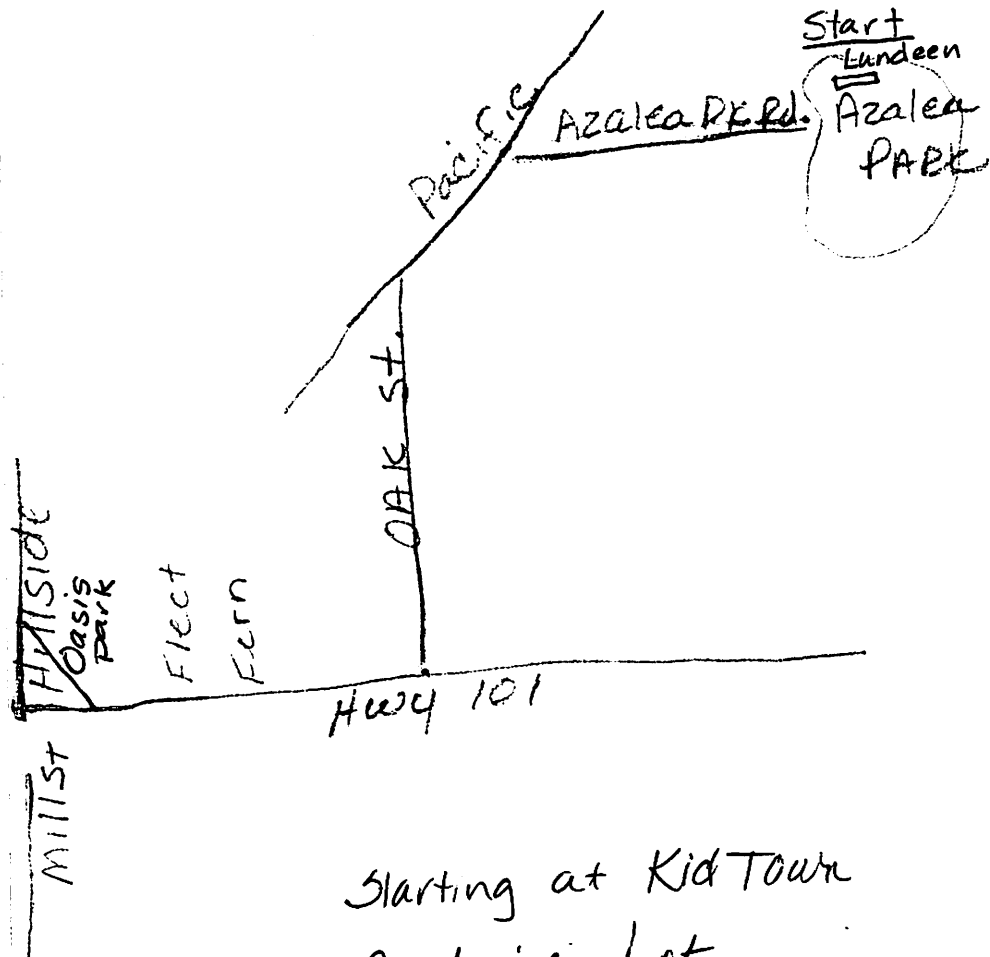 Start
Lundeen
Azalea Pk Rd.
Azalea
PARK
Pacific
OAK St.
Hillside
Oasis
park
Flect
Fern
Hwy 101
Mill St
Starting at Kid Town